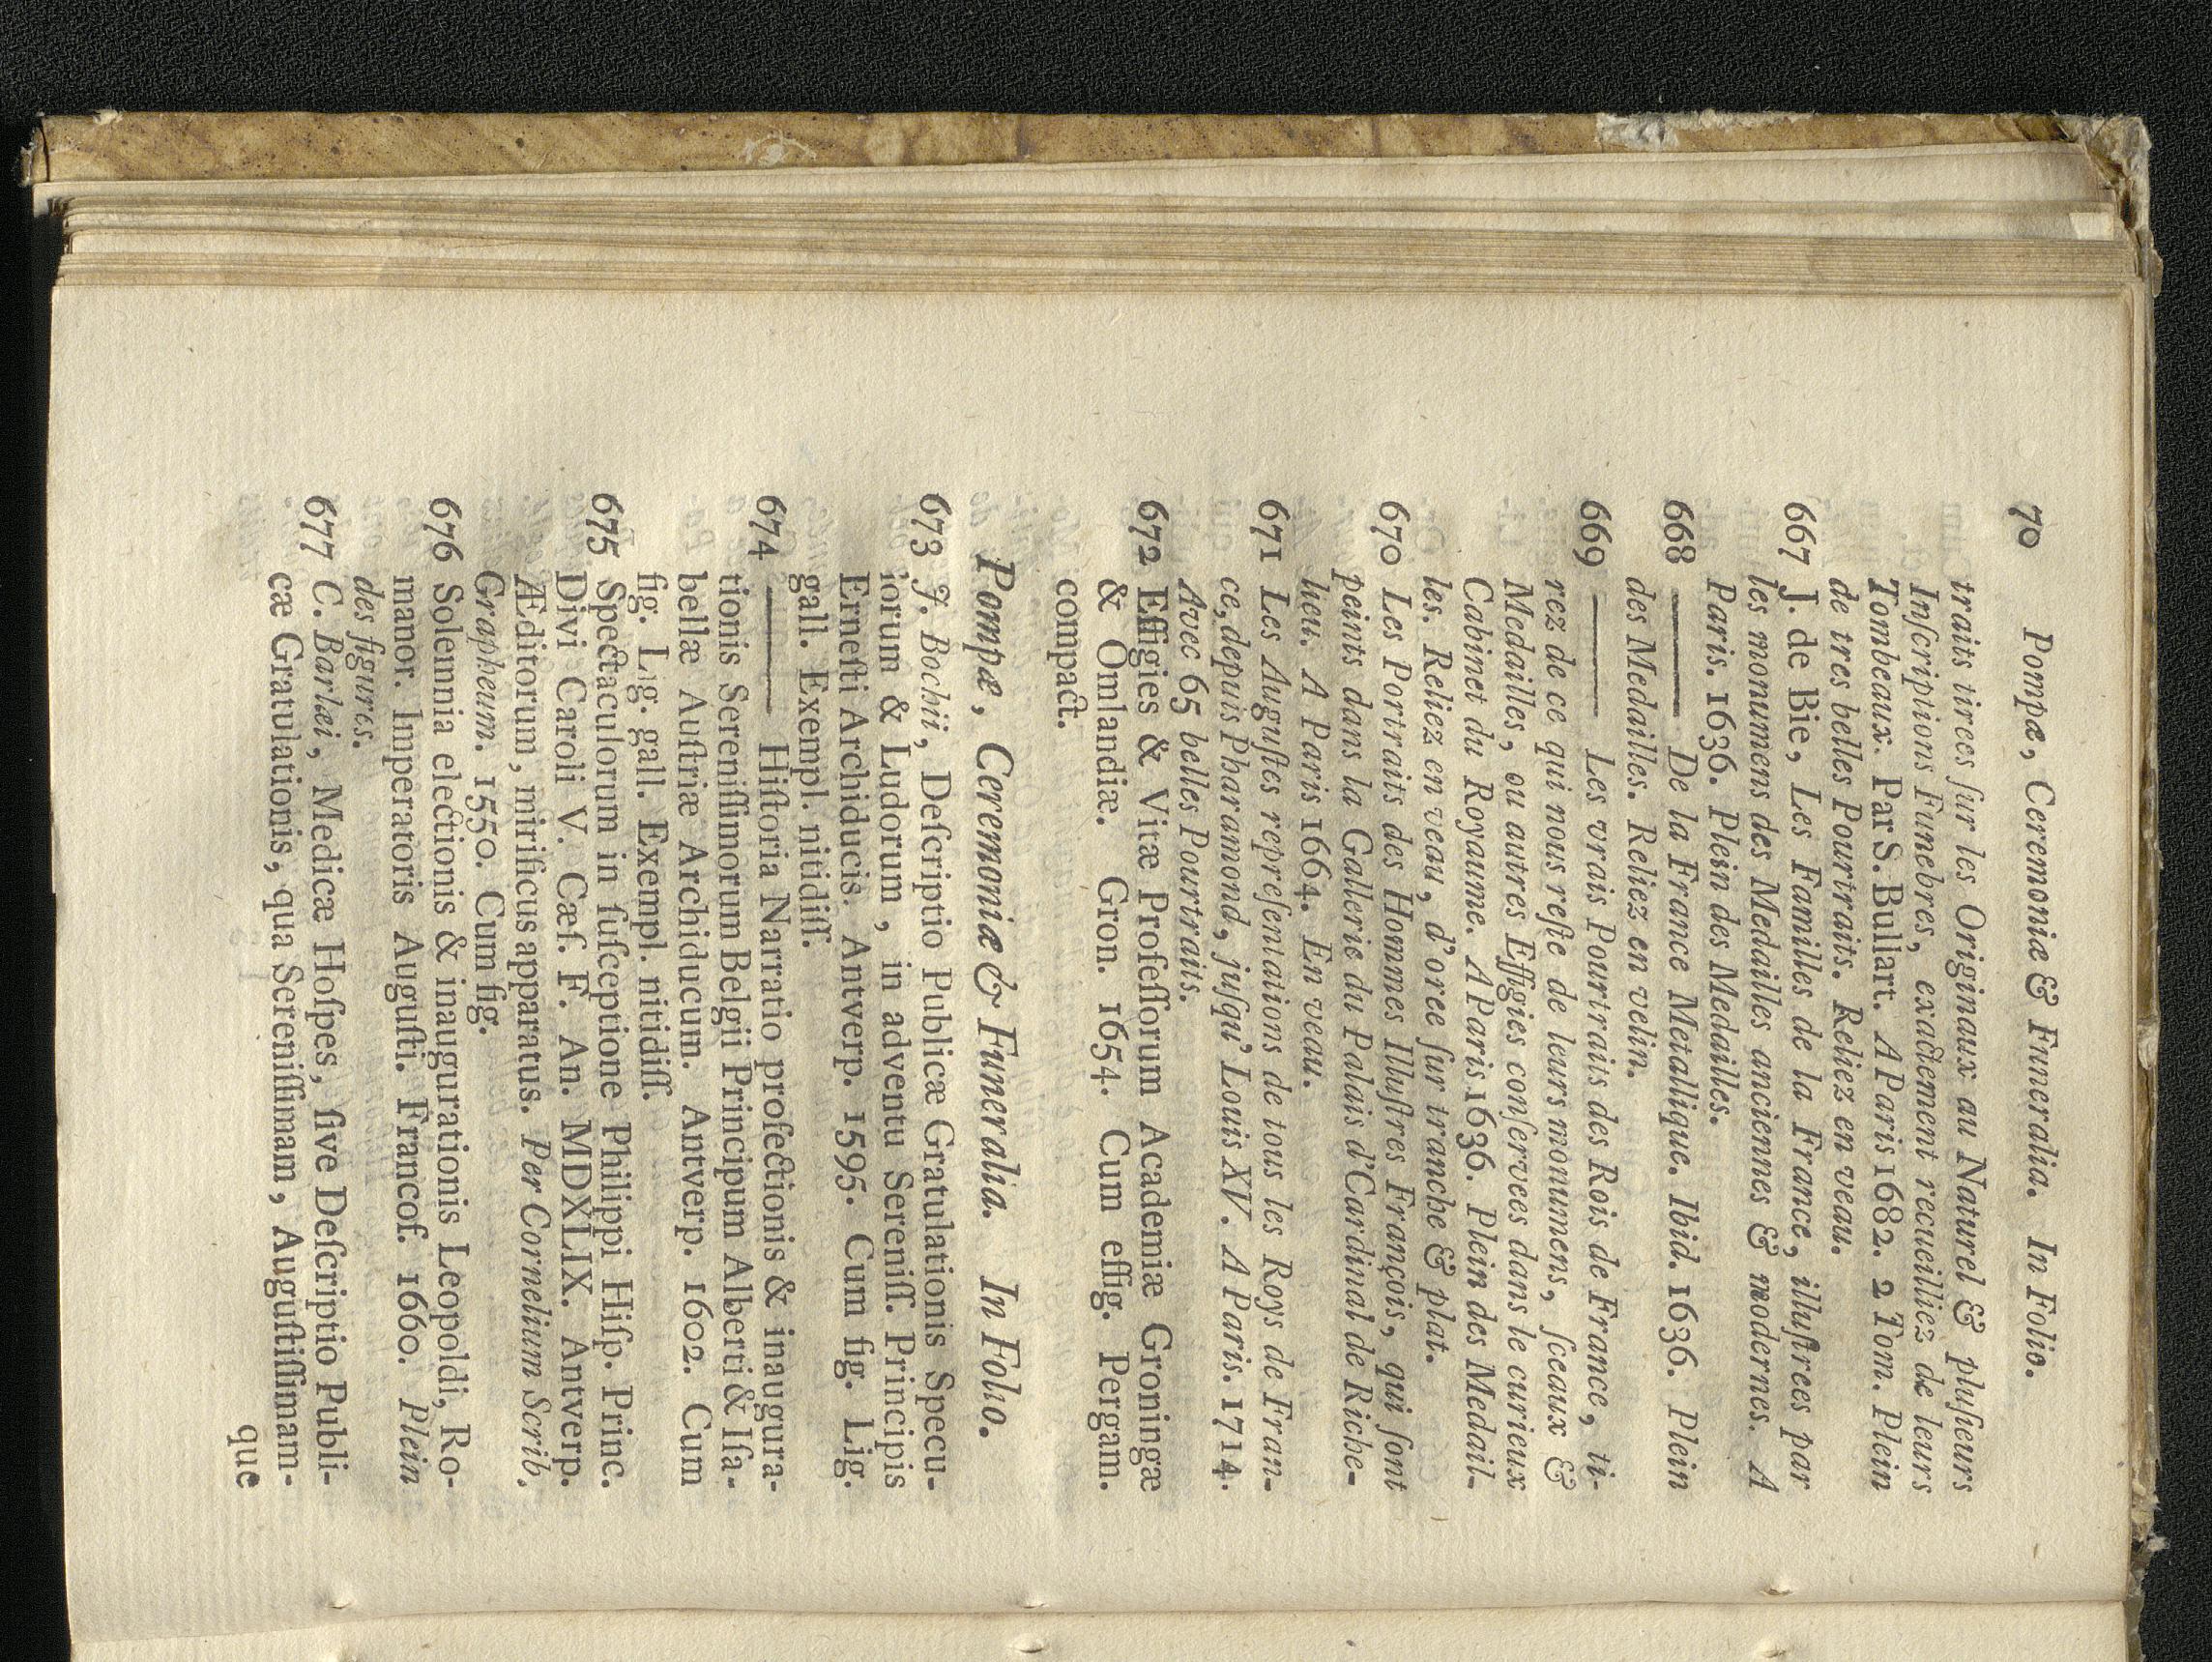 70 Pompæ, Ceremoniæ & Funeralia. In Folio.
traits tirees ſur les Originaux au Naturel & pluſieurs
Inſcriptions Funebres, exactement recueilliez de leurs
Tombeaux. Par S. Bullart. A Paris 1682. 2 Tom. Plein
de tres belles Pourtraits. Reliez en veau.
667 J. de Bie, Les Familles de la France, illuſtrees par
les monumens des Medailles anciennes & modernes. A
Paris. 1636. Plein des Medailles.
668 ——— De la France Metallique. Ibid. 1636. Plein
des Medailles. Reliez en velin.
669 ——— Les vrais Pourtraits des Rois de France, ti-
rez de ce qui nous reſte de leurs monumens, ſceaux &
Medailles, ou autres Effigies conſervees dans le curieux
Cabinet du Royaume. A Paris 1636. Plein des Medail-
les. Reliez en veau, d'oree ſur tranche & plat.
670 Les Portraits des Hommes Illuſtres François, qui ſont
peints dans la Gallerie du Palais d'Cardinal de Riche-
lieu. A Paris 1664. En veau.
671 Les Auguſtes repreſentations de tous les Roys de Fran-
ce, depuis Pharamond, juſqu' Louis XV. A Paris. 1714.
Avec 65 belles Pourtraits.
672 Effigies & Vitæ Profeſſorum Academiæ Groningæ
& Omlandiæ. Gron. 1654. Cum effig. Pergam.
compact.
Pompæ, Ceremoniæ & Funeralia. In Folio.
673 J. Bochii, Deſcriptio Publicæ Gratulationis Specu-
iorum & Ludorum, in adventu Sereniſſ. Principis
Erneſti Archiducis. Antverp. 1595. Cum fig. Lig.
gall. Exempl. nitidiſſ.
674 ——— Hiſtoria Narratio profectionis & inaugura-
tionis Sereniſſimorum Belgii Principum Alberti & Iſa-
bellæ Auſtriæ Archiducum. Antverp. 1602. Cum
fig. Lig. gall. Exempl. nitidiſſ.
675 Spectaculorum in ſuſceptione Philippi Hiſp. Princ.
Divi Caroli V. Cæſ. F. An. MDXLIX. Antverp.
Æditorum, mirificus apparatus. Per Cornelium Scrib.
Grapheum. 1550. Cum fig.
676 Solemnia electionis & inaugurationis Leopoldi, Ro-
manor. Imperatoris Auguſti. Francof. 1660. Plein
des figures.
677 C. Barlæi, Medicæ Hoſpes, ſive Deſcriptio Publi-
cæ Gratulationis, qua Sereniſſimam, Auguſtiſſimam-
que